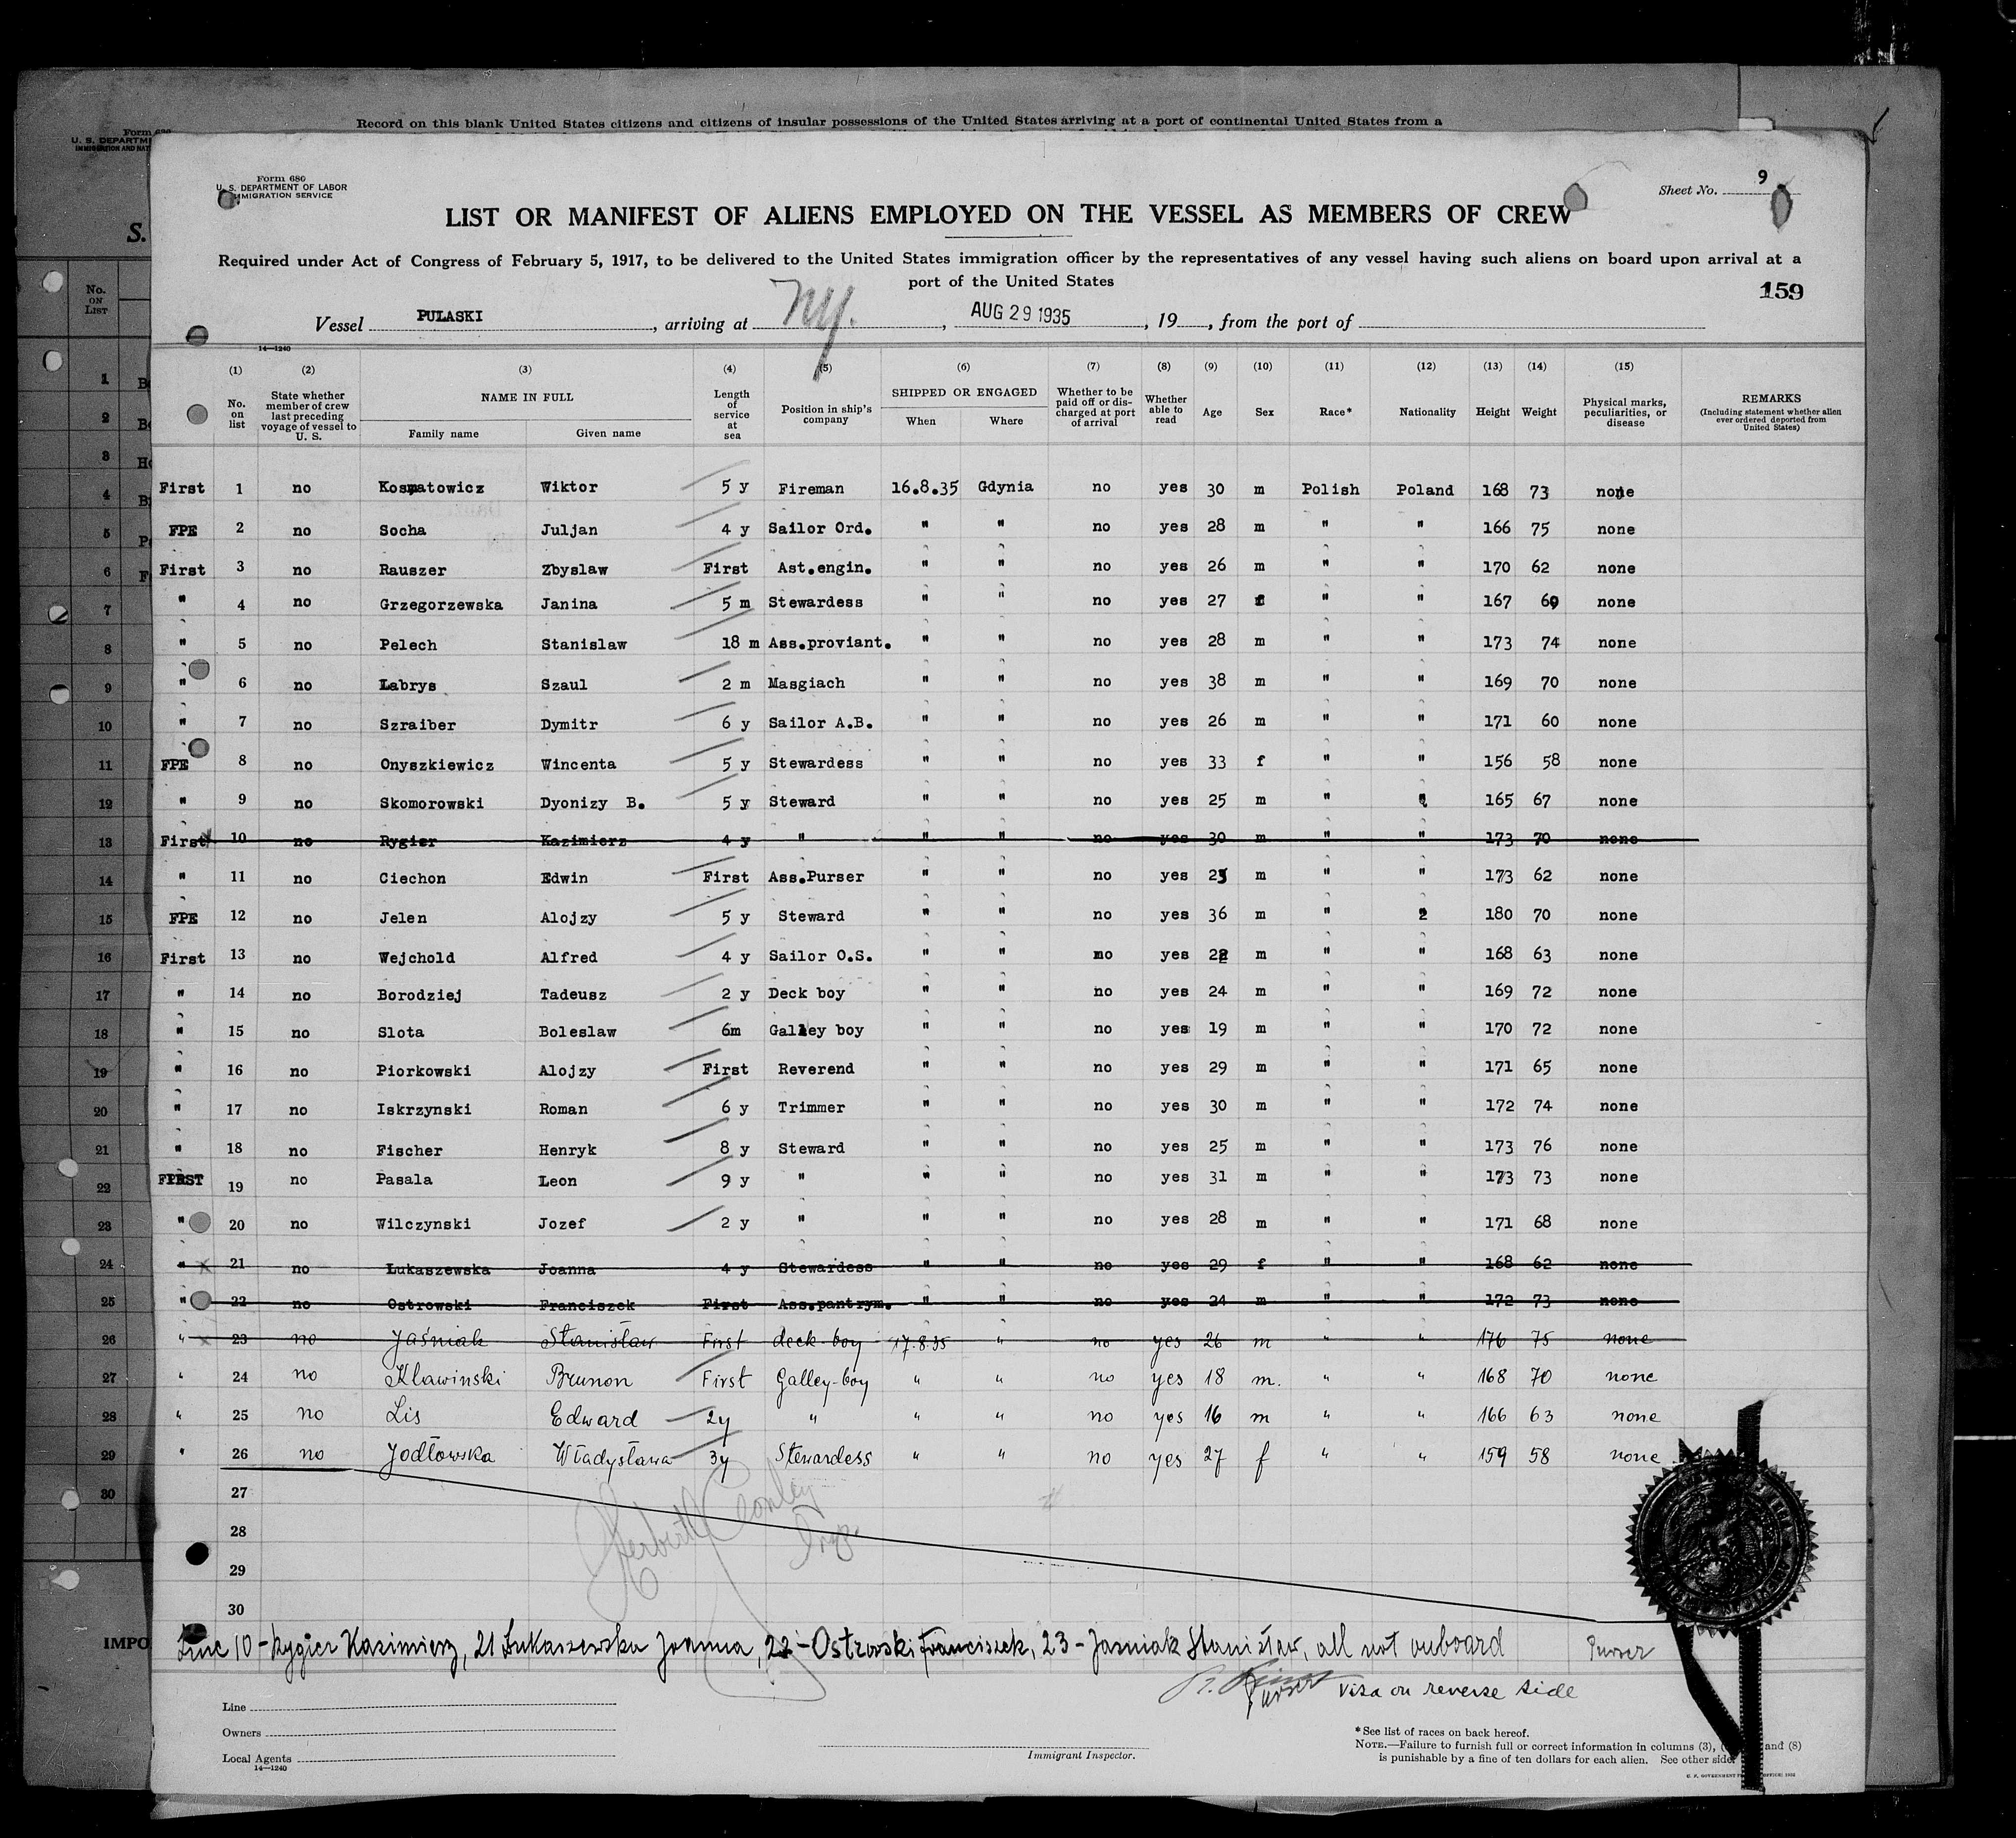 Record on this blank United States citizens and citizens of insular possessions of the United States arriving at a port of continental United States from a
Form 680
U. S. DEPARTMENT OF LABOR
IMMIGRATION SERVICE
Sheet No. 9
LIST OR MANIFEST OF ALIENS EMPLOYED ON THE VESSEL AS MEMBERS OF CREW
Required under Act of Congress of February 5, 1917, to be delivered to the United States immigration officer by the representatives of any vessel having such aliens on board upon arrival at a
port of the United States
159
Vessel PULASKI, arriving at NY., AUG 29 1935, 19 , from the port of
14—1240
(1) (2) (3) (4) (5) (6) (7) (8) (9) (10) (11) (12) (13) (14) (15)
No. on list State whether member of crew last preceding voyage of vessel to U. S. NAME IN FULL Family name Given name Length of service at sea Position in ship's company SHIPPED OR ENGAGED When Where Whether to be paid off or discharged at port of arrival Whether able to read Age Sex Race* Nationality Height Weight Physical marks, peculiarities, or disease REMARKS (Including statement whether alien ever ordered deported from United States)
First 1 no Kosmatowicz Wiktor 5 y Fireman 16.8.35 Gdynia no yes 30 m Polish Poland 168 73 none
FPE 2 no Socha Juljan 4 y Sailor Ord. " " no yes 28 m " " 166 75 none
First 3 no Rauszer Zbyslaw First Ast.engin. " " no yes 26 m " " 170 62 none
" 4 no Grzegorzewska Janina 5 m Stewardess " " no yes 27 f " " 167 69 none
" 5 no Pelech Stanislaw 18 m Ass.proviant. " " no yes 28 m " " 173 74 none
" 6 no Labrys Szaul 2 m Masgiach " " no yes 38 m " " 169 70 none
" 7 no Szraiber Dymitr 6 y Sailor A.B. " " no yes 26 m " " 171 60 none
FPE 8 no Onyszkiewicz Wincenta 5 y Stewardess " " no yes 33 f " " 156 58 none
" 9 no Skomorowski Dyonizy B. 5 y Steward " " no yes 25 m " " 165 67 none
First 10 no Rygier Kazimierz 4 y " " " no yes 30 m " " 173 70 none
" 11 no Ciechon Edwin First Ass.Purser " " no yes 25 m " " 173 62 none
FPE 12 no Jelen Alojzy 5 y Steward " " no yes 36 m " " 180 70 none
First 13 no Wejchold Alfred 4 y Sailor O.S. " " no yes 22 m " " 168 63 none
" 14 no Borodziej Tadeusz 2 y Deck boy " " no yes 24 m " " 169 72 none
" 15 no Slota Boleslaw 6m Galley boy " " no yes 19 m " " 170 72 none
" 16 no Piorkowski Alojzy First Reverend " " no yes 29 m " " 171 65 none
" 17 no Iskrzynski Roman 6 y Trimmer " " no yes 30 m " " 172 74 none
" 18 no Fischer Henryk 8 y Steward " " no yes 25 m " " 173 76 none
FIRST 19 no Pasala Leon 9 y " " " no yes 31 m " " 173 73 none
" 20 no Wilczynski Jozef 2 y " " " no yes 28 m " " 171 68 none
" 21 no Lukaszewska Joanna 4 y Stewardess " " no yes 29 f " " 168 62 none
" 22 no Ostrowski Franciszek First Ass.pantrym. " " no yes 24 m " " 172 73 none
" 23 no Jaśniak Stanisław First deck-boy 17.8.35 " no yes 26 m " " 176 75 none
" 24 no Klawinski Brunon First Galley-boy " " no yes 18 m. " " 168 70 none
" 25 no Lis Edward 2y " " " no yes 16 m " " 166 63 none
" 26 no Jodłowska Władysława 3y Stewardess " " no yes 27 f " " 159 58 none
27
28
29
30
Line 10 - Rygier Kazimierz, 21 Łukaszewska Joanna, 22 - Ostrowski Franciszek, 23 - Jasniak Stanisław, all not onboard Purser
Purser Visa on reverse side
Line
Owners
Local Agents
14—1240
Immigrant Inspector.
*See list of races on back hereof.
NOTE.—Failure to furnish full or correct information in columns (3), and (8)
is punishable by a fine of ten dollars for each alien. See other side